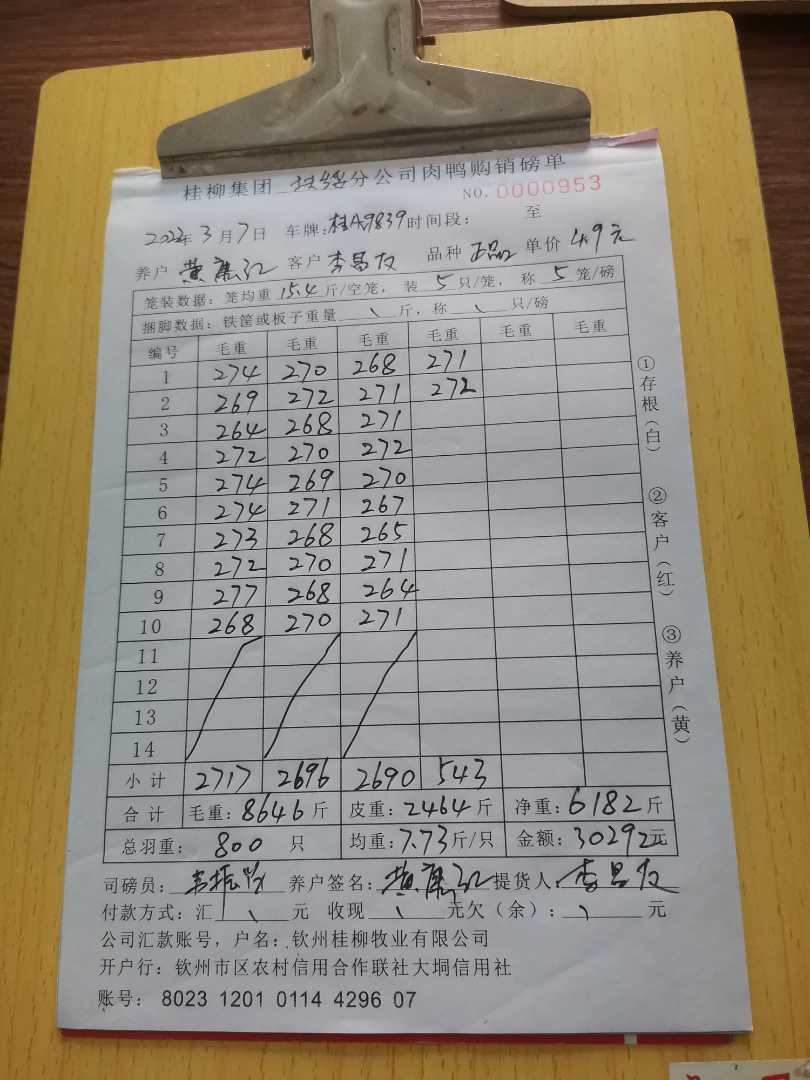 桂柳集团 分公司肉鸭购销磅单
NO. 0000953
2022年3月7日 车牌:桂A9839 时间段: 至
养户 黄 红 客户 李昌友 品种 正品 单价 4.9元
笼装数据: 笼均重 15.4 斤/空笼, 装 5 只/笼, 称 5 笼/磅
捆脚数据: 铁筐或板子重量 \ 斤, 称 \ 只/磅
编号 毛重 毛重 毛重 毛重 毛重 毛重
1 274 270 268 271
2 269 272 271 272
3 264 268 271
4 272 270 272
5 274 269 270
6 274 271 267
7 273 268 265
8 272 270 271
9 277 268 264
10 268 270 271
11
12
13
14
小计 2717 2696 2690 543
合计 毛重: 8646 斤 皮重: 2464 斤 净重: 6182 斤
总羽重: 800 只 均重: 7.73 斤/只 金额: 30292 元
司磅员: 养户签名: 黄 红 提货人: 李昌友
付款方式: 汇 \ 元 收现 \ 元欠(余): \ 元
公司汇款账号, 户名: 钦州桂柳牧业有限公司
开户行: 钦州市区农村信用合作联社大垌信用社
账号: 8023 1201 0114 4296 07
①存根(白) ②客户(红) ③养户(黄)